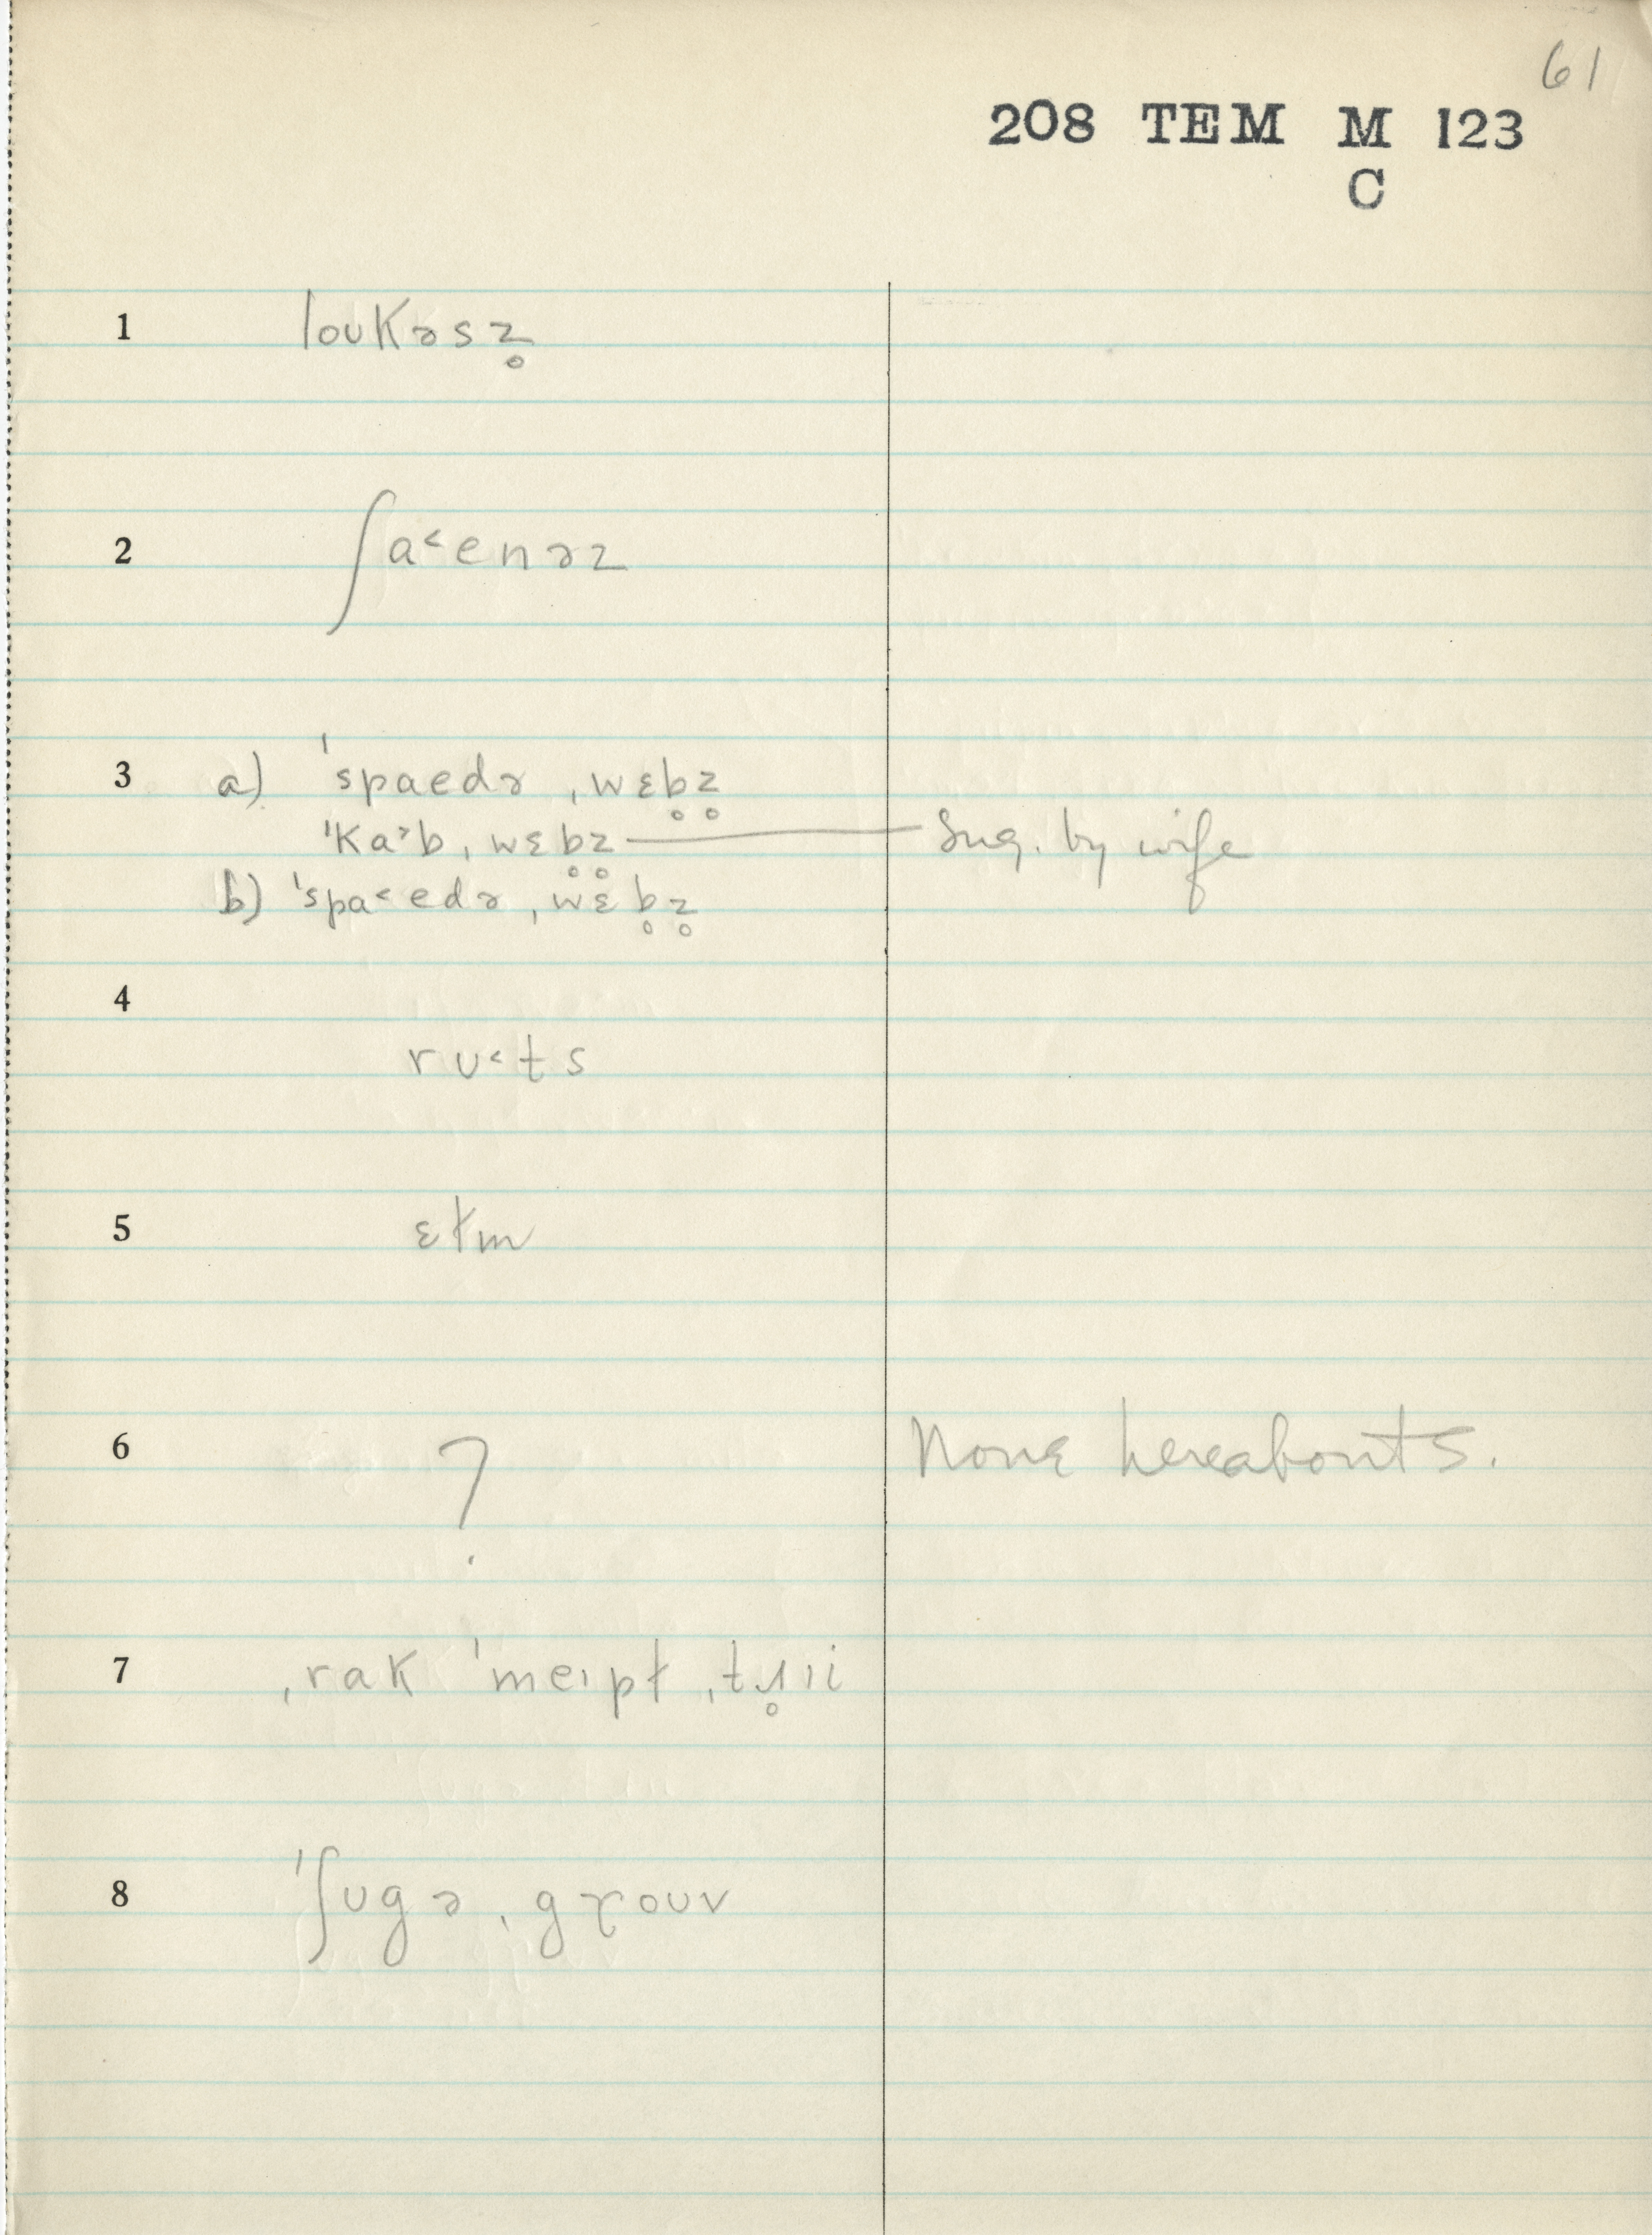 61
208 TEM M 123
C
1 loukəsz̥
2 ʃa˂enəz
3 a) ˈspaedə ˌwɛb̥z̥
ˈka˃b ˌwɛb̥z̥ — Sug. by wife
b) ˈspa˂edə ˌwɛb̥z̥
4 rʊ˂ts
5 ɛɫm
6 ? None hereabouts.
7 ˌrak ˈmeɪpɫ ˌtɹ̥ɪi
8 ˈʃʊgə ˌgɤoʊv